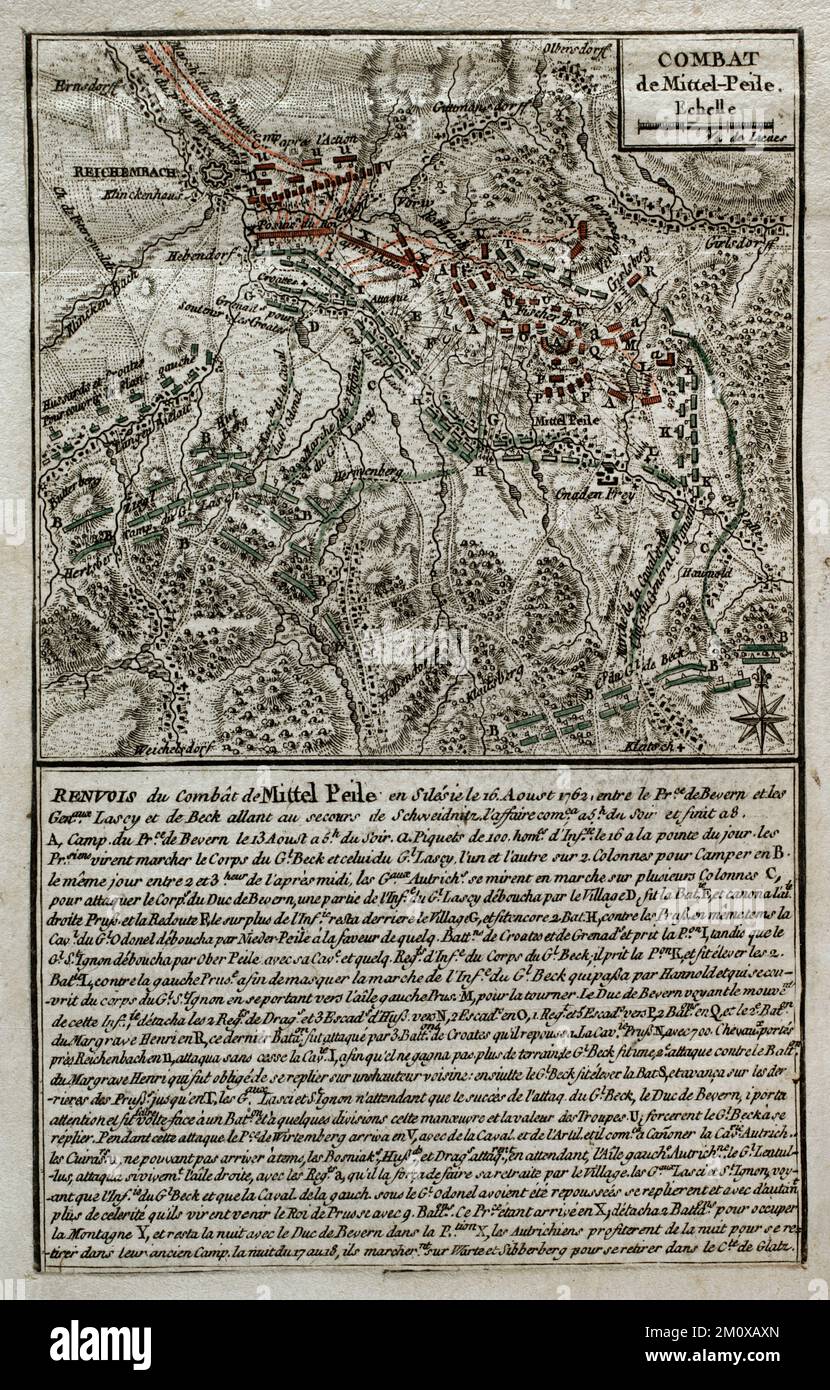 COMBAT
de Mittel-Peile.
Echelle
Olbersdorff
Ernsdorff
Guttmansdorff
Camp après l'Action
REICHEMBACH
Klinckenhaus
Girlsdorff
Hebendorf
Croates
Attaque
Klincken Bach
Mittel Peile
Gnaden Frey
Hertsberg
Haunold
Camp du Gl. Lascy
Kleitsberg
Weichelsdorf
Kleitsch
RENVOIS du Combât de Mittel Peile en Silésie le 16. Aoust 1762, entre le Pr.ce de Bevern et les
Gen.aux Lascy et de Beck allant au secours de Schweidnitz, l'affaire com.ça a 5.h du Soir et finit a 8.
A, Camp du Pr.ce de Bevern le 13 Aoust a 6.h du Soir. a. Piquets de 100. hom.s d'Inf.ie le 16 a la pointe du jour. les
Pr.siens virent marcher le Corps du G.l Beck et celui du G.l Lascy, l'un et l'autre sur 2. Colonnes pour Camper en B.
le même jour entre 2 et 3 heur. de l'après midi, les G.aux Autrich.s se mirent en marche sur plusieurs Colonnes C,
pour attaquer le Corp.s du Duc de Bevern, une partie de l'Inf.ie du G.l Lascy déboucha par le Village D, fit la Bat.ie E, et canona l'ai.le
droite Pruss. et la Redoute F, le surplus de l'Inf.ie resta derriere le Village G, et fit encore 2. Bat. H, contre les Pruss. en meme tems la
Cav.ie du G.l Odonel déboucha par Nieder-Peile à la faveur de quelq. Batt.ns de Croates et de Grenad.s et prit la P.on I, tandis que le
G.l S.t Ignon déboucha par Ober Peile avec sa Cav.ie et quelq. Reg.s d'Inf.ie du Corps du G.l Beck, il prit la P.on K, et fit élever les 2.
Bat.ies L, contre la gauche Prus.ne afin de masquer la marche de l'Inf.ie du G.l Beck qui passa par Hannold et qui se cou-
vrit du corps du G.l S.t Ignon en se portant vers l'aile gauche Prus. M, pour la tourner. Le Duc de Bevern voyant le mouve.nt
de cette Inf.ie détacha les 2 Reg.s de Drag.s et 3 Escad. d'Huss. vers N, 2 Escad. en O, 1. Reg. et 5 Escad. vers P, 2 Bat.ns en Q, et le 2.e Bat.on
du Margrave Henri en R, ce dernier Bata.on fut attaqué par 3 Batt.ons de Croates qu'il repoussa. La Cav.ie Pruss. N, avec 700. Chevaux portés
près Reichenbach en n, attaqua sans cesse la Cav. I, afin qu'elle ne gagna pas plus de terrain. le G.l Beck fit une 2.e attaque contre le Bat.on
du Margrave Henri qui fut obligé de se replier sur une hauteur voisine: ensuitte le G.l Beck fit élever la Bat S, et avança sur les der-
rieres des Pruss. jusqu'en T, les G.aux Lasci et S.t Ignon n'attendant que le succès de l'attaq. du G.l Beck, le Duc de Bevern, i porta
attention, et fit faire volte-face à un Bat.on et à quelques divisions cette manœuvre et la valeur des Troupes, U, forcerent le G.l Beck a se
replier. Pendant cette attaque le P.ce de Wirtemberg arriva en V, avec de la Caval. et de l'Artil. et il com.ça a Cañoner la Ca.rie Autrich.
les Cuirass. u, ne pouvant pas arriver à tems, les Bosniak.s Huss. et Drag.s attaq. En attendant, l'Aile gauch. Autrich.ne le G.l Lentul-
lus, attaqua si vivem.t l'aile droite, avec les Reg. a, qu'il la força de faire sa retraite par le Village. les G.aux Lasci et S.t Ignon, voy-
ant que l'Inf.ie du G.l Beck et que la Caval. de la gauch. sous le G.l Odonel avoient été repoussées se replierent et avec d'autan.t
plus de celerité qu'ils virent venir le Roi de Prusse avec 9. Batt.ns. Ce Pr.ce etant arrivé en X, détacha 2 Batt.ns pour occuper
la Montagne Y, et resta la nuit avec le Duc de Bevern dans la P.tion X, les Autrichiens profiterent de la nuit pour se re-
tirer dans leur ancien Camp. la nuit du 17 au 18, ils marcher.nt sur Warte et Silberberg pour se retirer dans le C.té de Glatz.
alamy
Image ID: 2M0XAXN
www.alamy.com